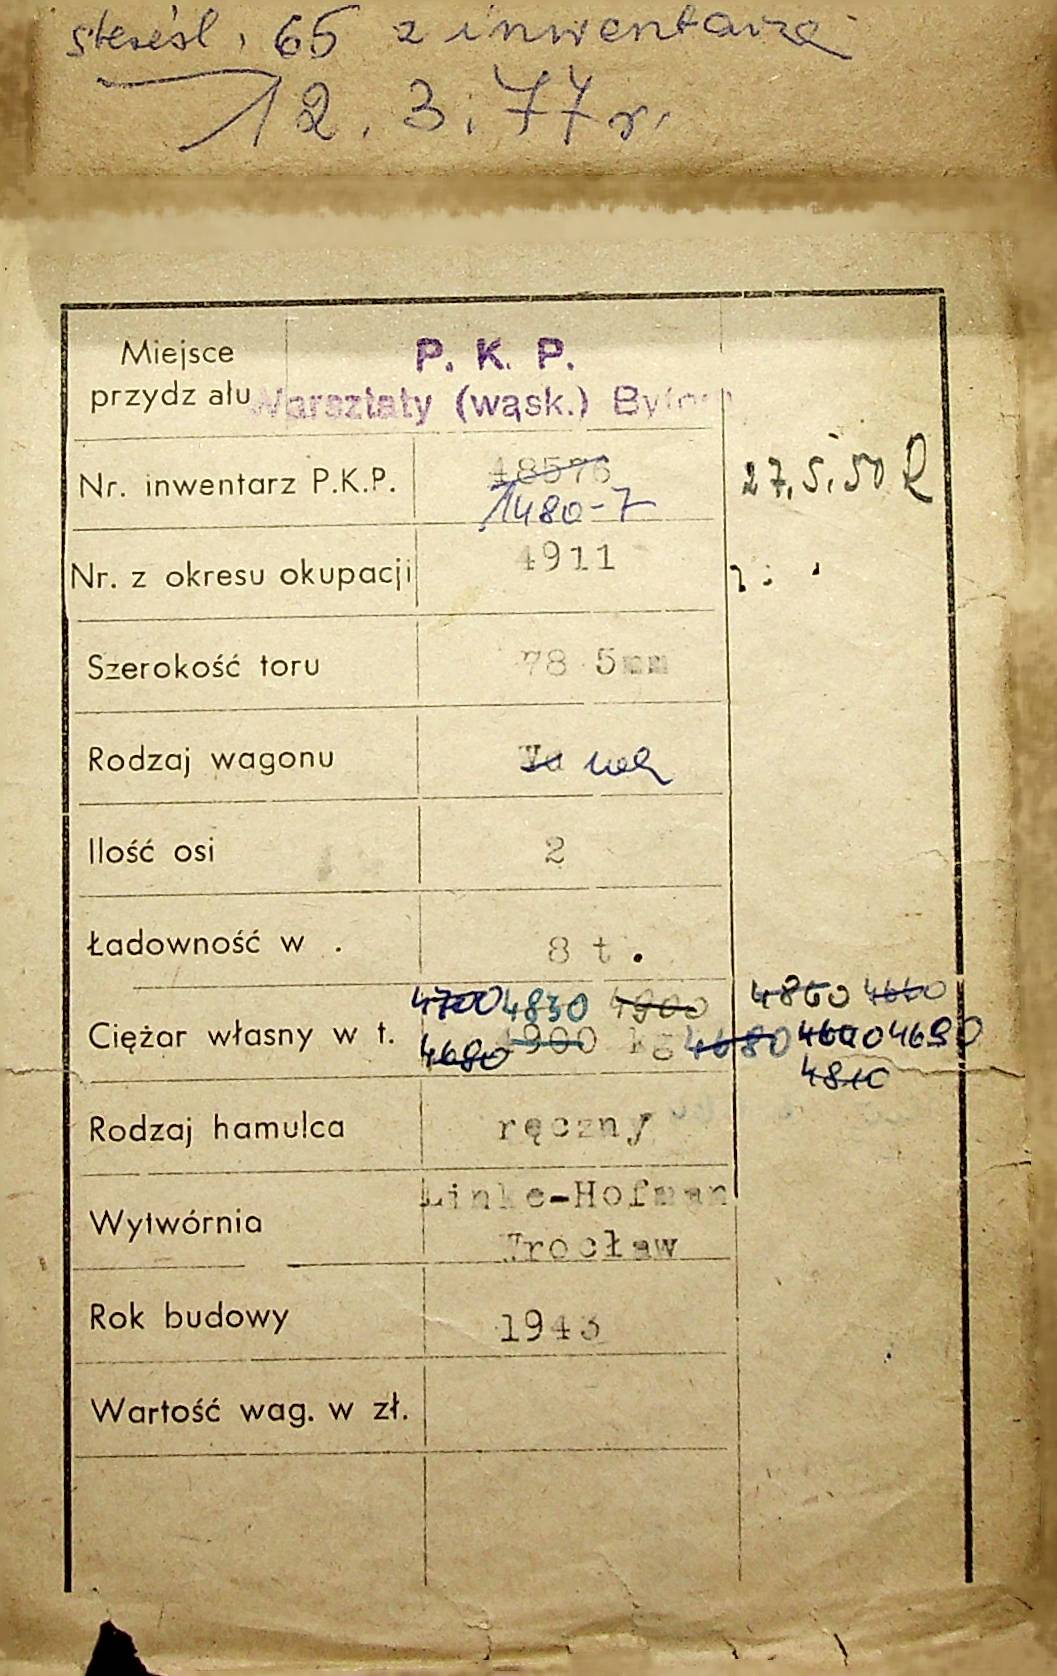 65 z inwentarza
12.3.77 r.
Miejsce przydz ału P. K. P.
Warsztaty (wąsk.) Bytom
Nr. inwentarz P.K.P. 48576 27.5.50 R
1480-7
Nr. z okresu okupacji 4911
Szerokość toru 78 5mm
Rodzaj wagonu
Ilość osi 2
Ładowność w . 8 t.
4700 4830 4900 4860 4660
Ciężar własny w t. 4680 4900 kg 4680 4600 4690
4810
Rodzaj hamulca ręczny
Wytwórnia Linke-Hofman
Wrocław
Rok budowy 1943
Wartość wag. w zł.